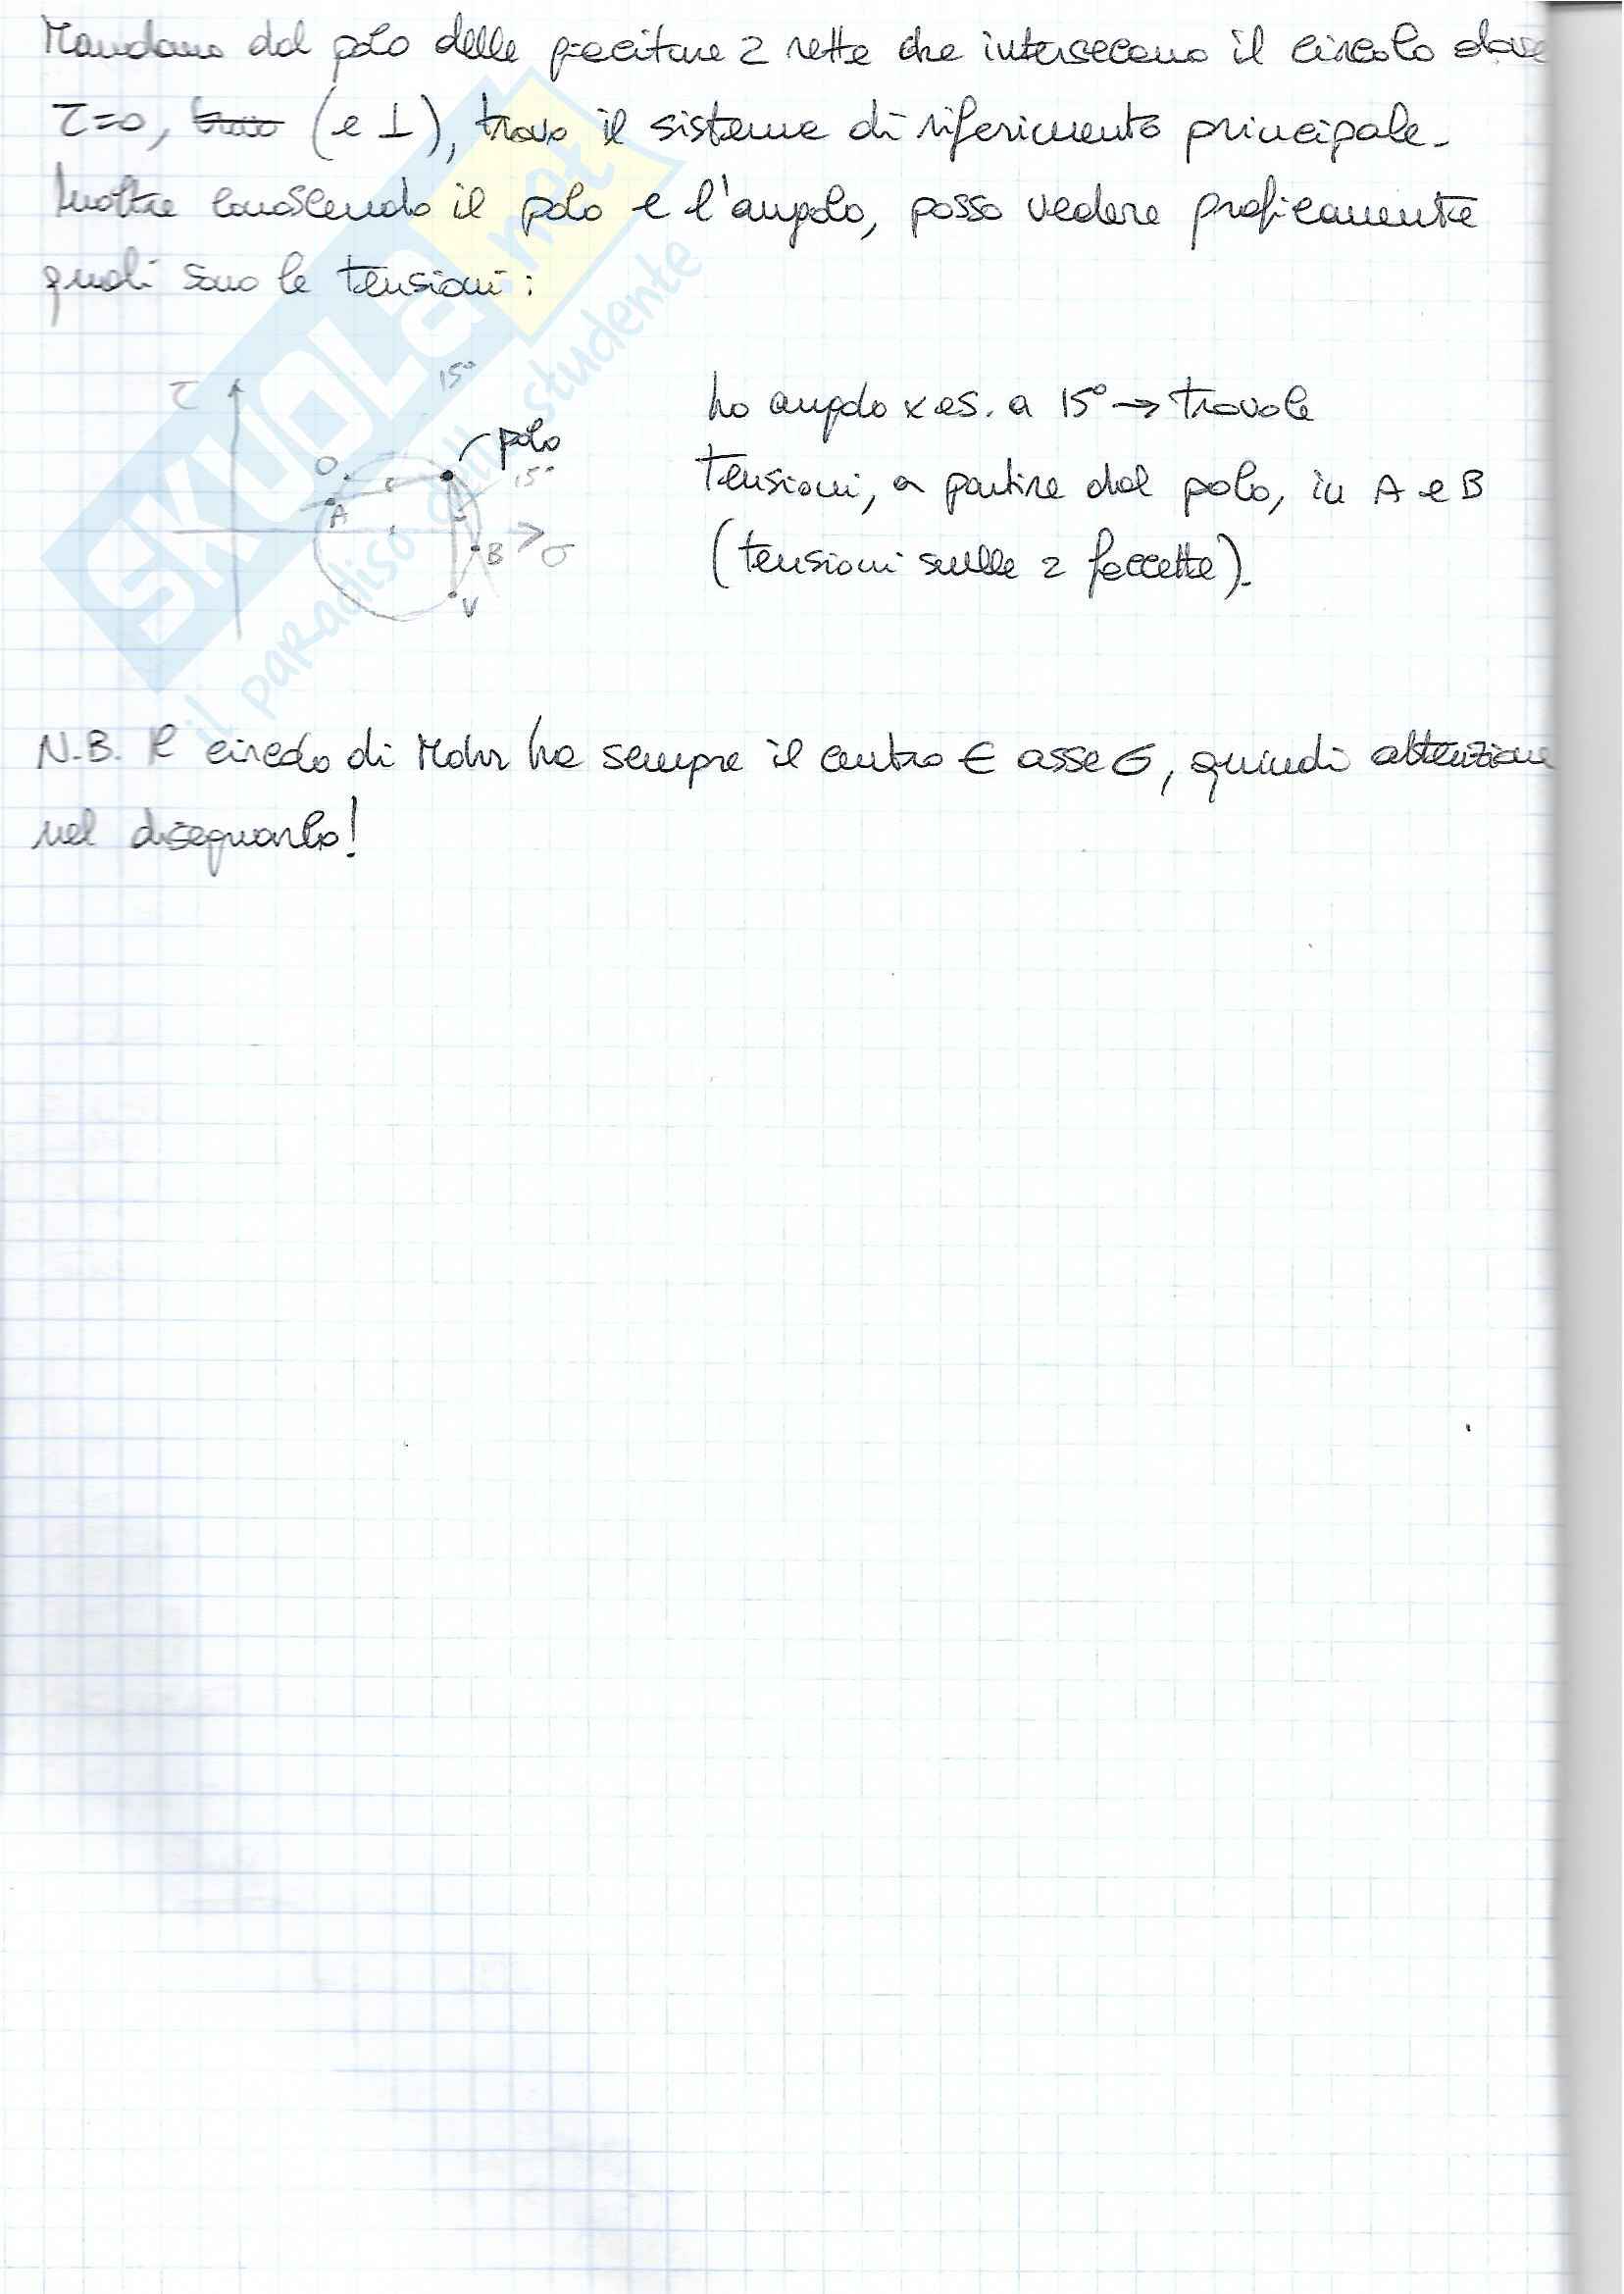 Mandano dal polo delle giaciture 2 rette che intersecano il circolo dove
τ=0, trovo (e ⊥), trovo il sistema di riferimento principale.
Inoltre conoscendo il polo e l'angolo, posso vedere graficamente
quali sono le tensioni:
τ
15°
polo
O
15°
A
B
σ
V
ho angolo x es. a 15° → trovo le
tensioni, a partire dal polo, in A e B
(tensioni sulle 2 faccette).
N.B. Il circolo di Mohr ha sempre il centro ∈ asse σ, quindi attenzione
nel disegnarlo!
SKUOLA.net
il paradiso dello studente